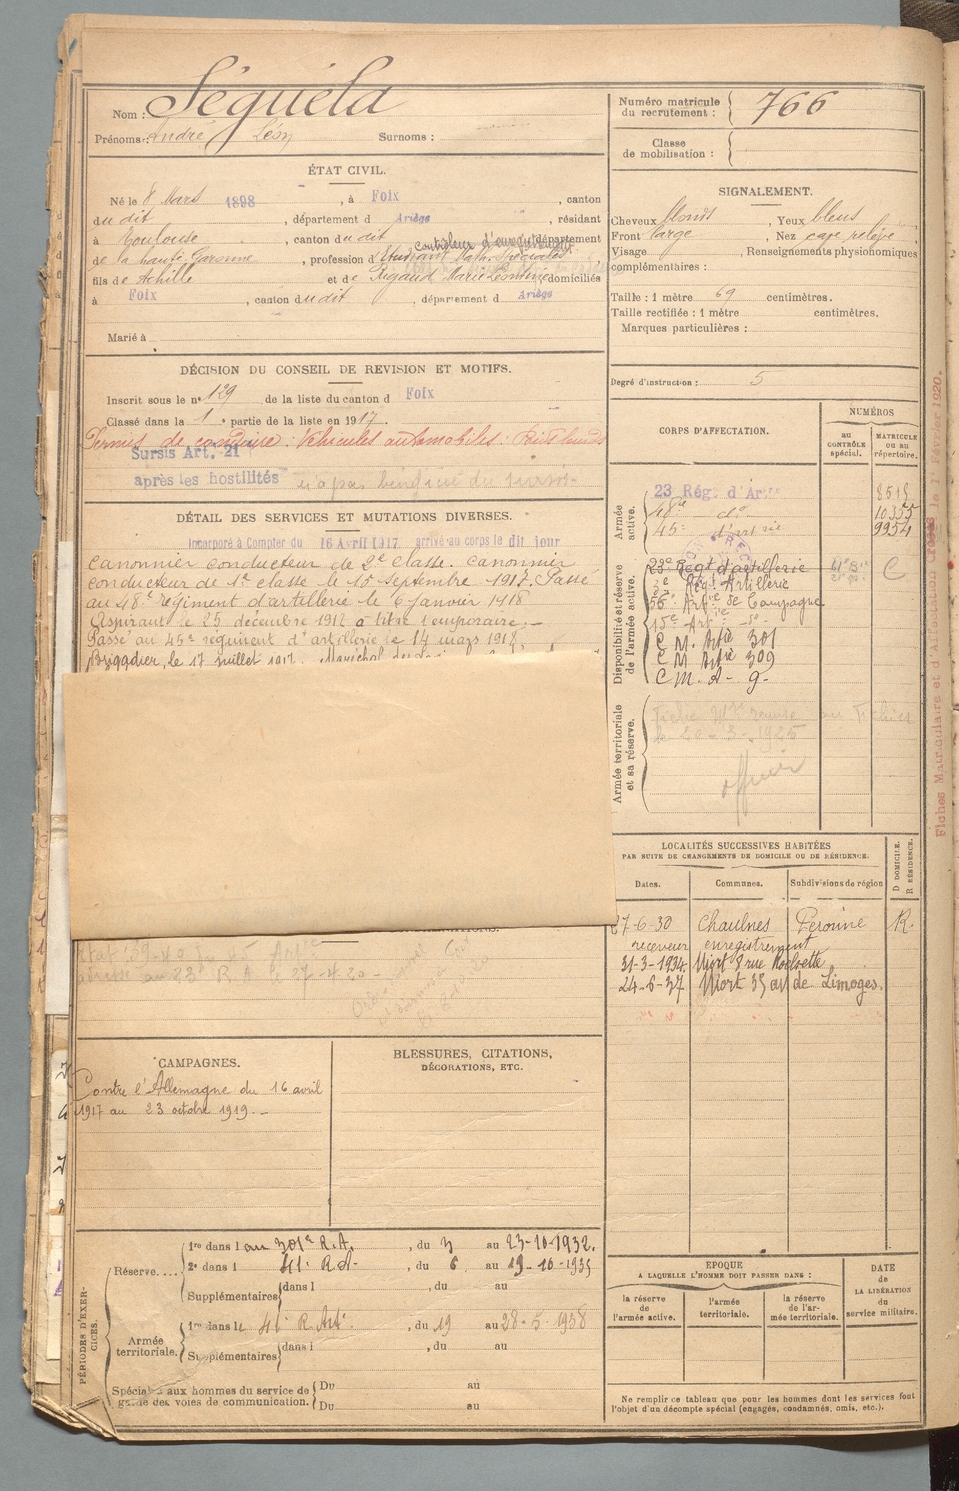 Nom : Séguéla
Prénoms : André Léon Surnoms :
ÉTAT CIVIL.
Né le 8 Mars 1898, à Foix, canton
du dit, département d Ariège, résidant
à Toulouse, canton du dit, département
contrôleur d'enregistrement
de la haute Garonne, profession d'étudiant Math. Spéciales,
fils de Achille et de Rigaud Marie Léontine, domiciliés
à Foix, canton du dit, département d Ariège
Marié à
DÉCISION DU CONSEIL DE REVISION ET MOTIFS.
Inscrit sous le n° 129 de la liste du canton d Foix
Classé dans la 1e partie de la liste en 1917.
Permis de conduire : Véhicules automobiles : Poids lourds
Sursis Art. 21
après les hostilités n'a pas bénéficié du sursis.
DÉTAIL DES SERVICES ET MUTATIONS DIVERSES.
Incorporé à Compter du 16 Avril 1917 arrivé au corps le dit jour
canonnier conducteur de 2e classe. canonnier
conducteur de 1e classe le 15 septembre 1917. Passé
au 48e régiment d'artillerie le 6 janvier 1918
Aspirant le 25 décembre 1917 à titre temporaire. -
Passé au 45e régiment d'artillerie le 14 mars 1918.
Brigadier, le 17 juillet 1917. Maréchal des
état 39-40 du 45 Artie
adressé au 23 R.A. le 27-4-20 -
CAMPAGNES.
Contre l'Allemagne du 16 avril
1917 au 23 octobre 1919. -
BLESSURES, CITATIONS,
DÉCORATIONS, ETC.
PÉRIODES D'EXERCICES.
Réserve....
1re dans l au 301e R.A., du 3 au 23-10-1932.
2e dans l 41e R.A., du 6 au 19-10-1935
Supplémentaires dans l , du au
Armée territoriale.
1re dans le 41e R. Art., du 19 au 28-5-1938
Supplémentaires dans l , du au
Spéciales aux hommes du service de garde des voies de communication.
Du au
Du au
Numéro matricule du recrutement : 766
Classe de mobilisation :
SIGNALEMENT.
Cheveux blonds, Yeux bleus
Front large, Nez cave relevé
Visage , Renseignements physionomiques
complémentaires :
Taille : 1 mètre 69 centimètres.
Taille rectifiée : 1 mètre centimètres.
Marques particulières :
Degré d'instruction : 5
CORPS D'AFFECTATION.
NUMÉROS
au CONTRÔLE spécial.
MATRICULE OU AU répertoire.
Armée active.
23 Régt d'Artie 8515
48e do 10355
45e d'artrie 9954
Disponibilité et réserve de l'armée active.
23e Régt d'artillerie C
2e Régt Artillerie
56e Artie de Campagne
15e Artie -do-
C M. Artie 301
C M Artie 309
C M. A - 9 -
Armée territoriale et sa réserve.
Fiche Mle remise au Fichier
le 20-3-1925
officier
LOCALITÉS SUCCESSIVES HABITÉES
PAR SUITE DE CHANGEMENTS DE DOMICILE OU DE RÉSIDENCE.
Dates. Communes. Subdivisions de région D DOMICILE. R RÉSIDENCE.
27-6-30 Chaulnes Péronne R.
receveur enregistrement
31-3-1934 Niort 8 rue
24-6-37 Niort 35 av de Limoges.
EPOQUE
A LAQUELLE L'HOMME DOIT PASSER DANS :
la réserve de l'armée active.
l'armée territoriale.
la réserve de l'armée territoriale.
DATE de LA LIBÉRATION du service militaire.
Ne remplir ce tableau que pour les hommes dont les services font
l'objet d'un décompte spécial (engagés, condamnés, omis, etc.).
Fiches Matriculaire et d'Affectation Créées le 1 Février 1920.